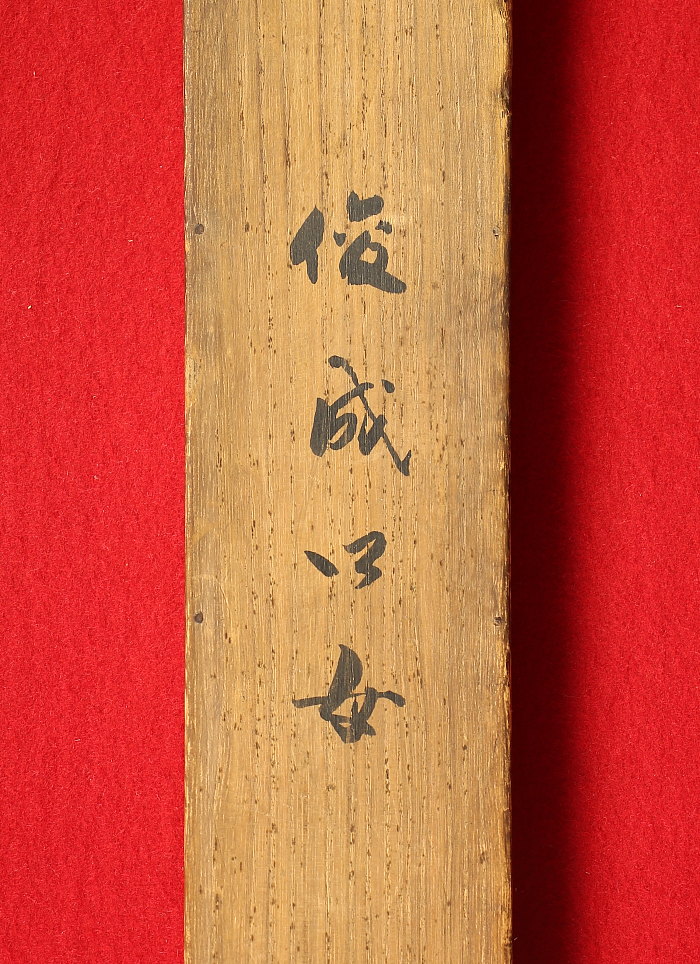 俊成卿女